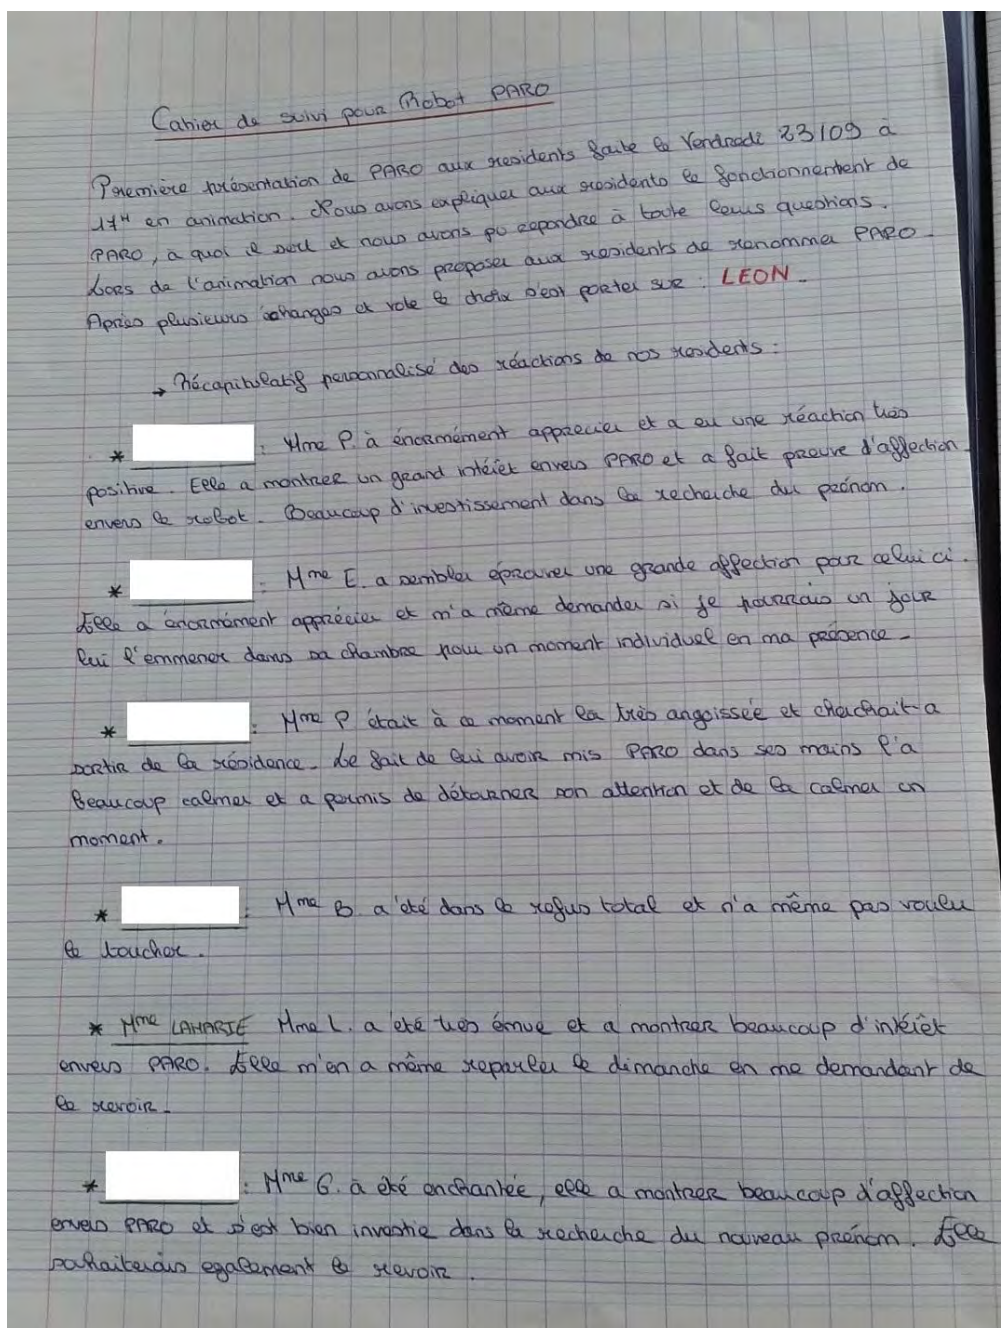 Cahier de suivi pour Robot PARO
Première présentation de PARO aux residents faite le Vendredi 23/09 à
17H en animation. Nous avons expliquer aux residents le fonctionnement de
PARO, à quoi il sert et nous avons pu repondre à toute leurs questions.
Lors de l'animation nous avons proposer aux residents de renommer PARO.
Après plusieurs échanges et vote le choix s'est porter sur : LEON.
→ Récapitulatif personnalisé des réactions de nos residents :
* : Mme P. à énormément apprecier et a eu une réaction très
positive. Elle a montrer un grand intérêt envers PARO et a fait preuve d'affection
envers le robot. Beaucoup d'investissement dans la recherche du prénom.
* : Mme E. a sembler éprouver une grande affection pour celui ci.
Elle a énormément apprécier et m'a même demander si je pourrais un jour
lui l'emmener dans sa chambre pour un moment individuel en ma présence.
* : Mme P était à ce moment la très angoissée et cherchait a
sortir de la résidence. Le fait de lui avoir mis PARO dans ses mains l'a
beaucoup calmer et a permis de détourner son attention et de la calmer un
moment.
* : Mme B. a été dans le refus total et n'a même pas voulu
le toucher.
* Mme LAHARIE Mme L. a été très émue et a montrer beaucoup d'intérêt
envers PARO. Elle m'en a même reparler le dimanche en me demandant de
le revoir.
* : Mme G. à été enchantée, elle a montrer beaucoup d'affection
envers PARO et s'est bien investie dans la recherche du nouveau prénom. Elle
souhaiterais egalement le revoir.